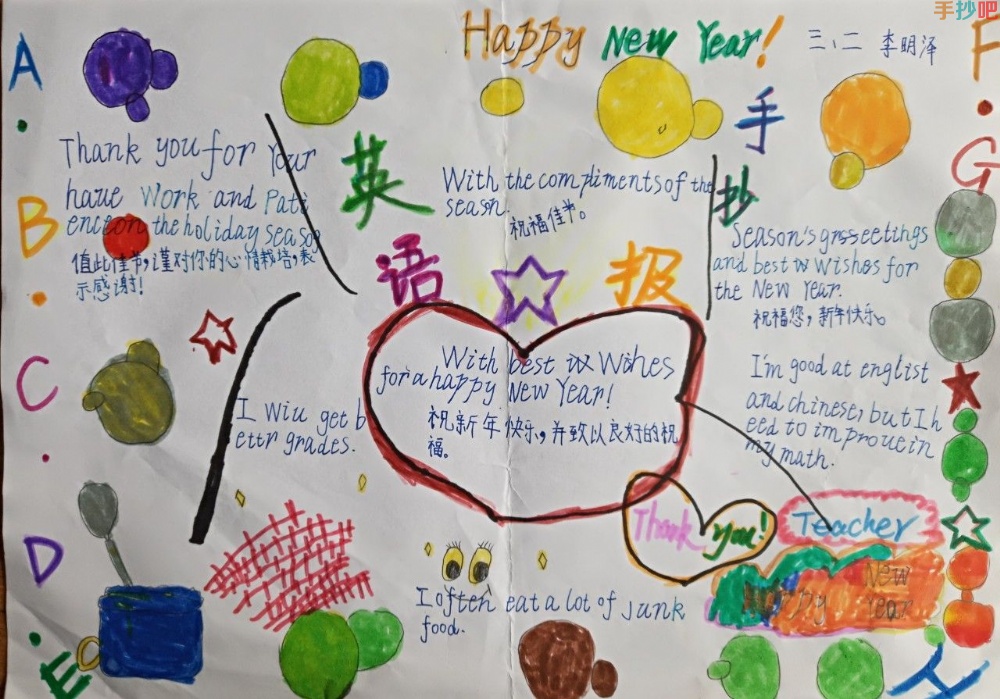 手抄吧
Happy New Year!
三、二 李明泽
A
B
C
D
E
F
G
英
语
手
抄
报
Thank you for your
haue Work and Pati
enceon the holiday season
值此佳节,谨对你的心情栽培,表
示感谢!
With the compliments of the
seasn.
祝福佳节。
Season's grsseetings
and best w Wishes for
the New Year.
祝福您,新年快乐。
With best Wihes
for a happy New Year!
祝新年快乐,并致以良好的祝
福。
I Wiu get b
ettr grades.
I'm good at englist
and chinese, but I h
eed to improuein
my math.
Thank you!
Teacher
Happy New
Year
I often eat a lot of Junk
food.